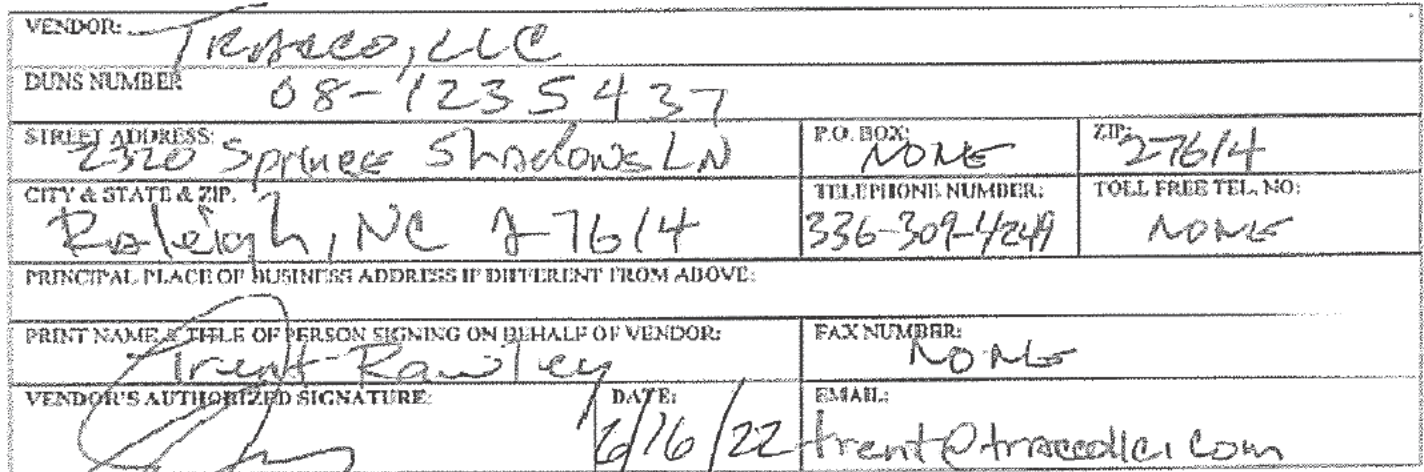 VENDOR: Tracco, LLC
DUNS NUMBER 08-1235437
STREET ADDRESS: 2320 Spruce Shadows LN P.O. BOX: NONE ZIP: 27614
CITY & STATE & ZIP. Raleigh, NC 27614 TELEPHONE NUMBER: 336-309-4249 TOLL FREE TEL. NO: NONE
PRINCIPAL PLACE OF BUSINESS ADDRESS IF DIFFERENT FROM ABOVE:
PRINT NAME & TITLE OF PERSON SIGNING ON BEHALF OF VENDOR: Trent Rawley FAX NUMBER: NONE
VENDOR'S AUTHORIZED SIGNATURE: DATE: 6/16/22 EMAIL: trent@traccollc.com